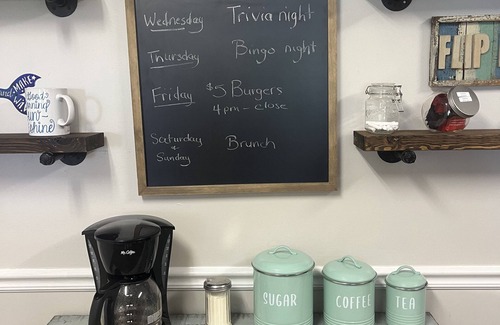 Wednesday Trivia night
Thursday Bingo night
Friday $5 Burgers
4pm - close
Saturday
&
Sunday
Brunch
FLIP
and MAKE
WA
Good
ning
un-
shine
Mr. Coffee
SUGAR
COFFEE
TEA